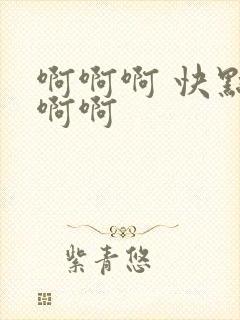 啊啊啊 快點
啊啊
紫青悠